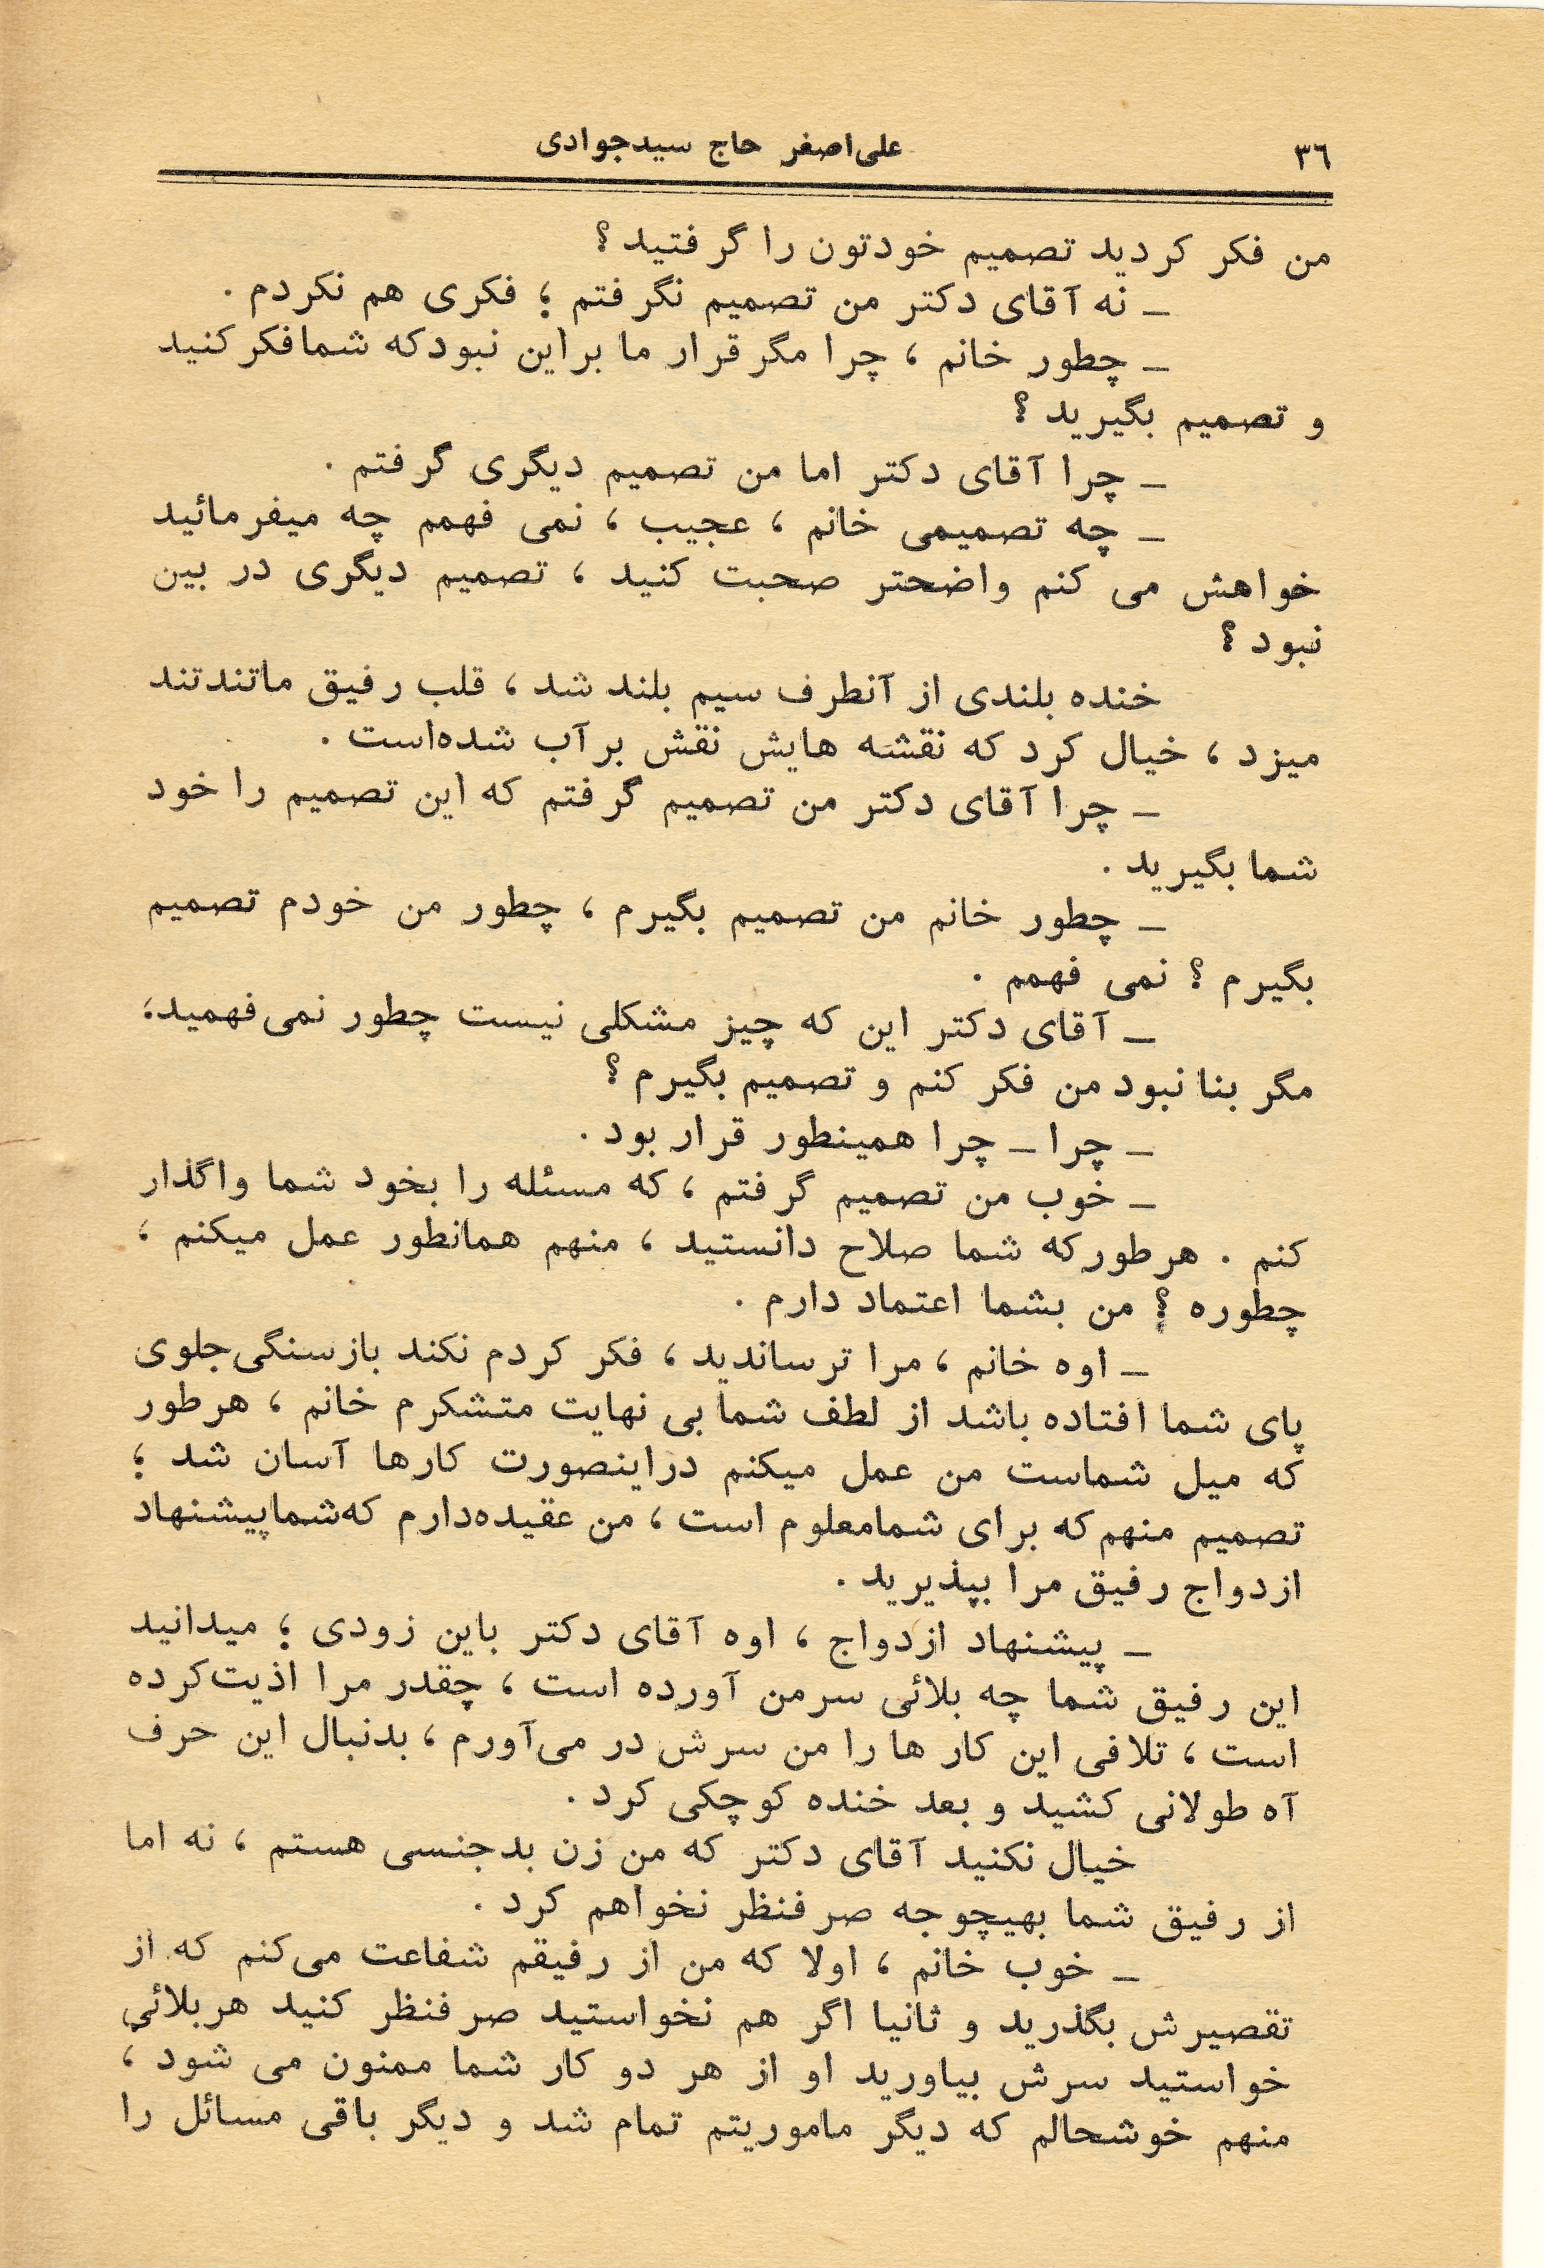 ۳٦
علی‌اصغر حاج سیدجوادی
من فکر کردید تصمیم خودتون را گرفتید ؟
ـ نه آقای دکتر من تصمیم نگرفتم ؛ فکری هم نکردم .
ـ چطور خانم ، چرا مگر قرار ما براین نبودکه شمافکرکنید
و تصمیم بگیرید ؟
ـ چرا آقای دکتر اما من تصمیم دیگری گرفتم .
ـ چه تصمیمی خانم ، عجیب ، نمی فهمم چه میفرمائید
خواهش می کنم واضحتر صحبت کنید ، تصمیم دیگری در بین
نبود ؟
خنده بلندی از آنطرف سیم بلند شد ، قلب رفیق ماتندتند
میزد ، خیال کرد که نقشه هایش نقش برآب شده‌است .
ـ چرا آقای دکتر من تصمیم گرفتم که این تصمیم را خود
شما بگیرید .
ـ چطور خانم من تصمیم بگیرم ، چطور من خودم تصمیم
بگیرم ؟ نمی فهمم .
ـ آقای دکتر این که چیز مشکلی نیست چطور نمی‌فهمید،
مگر بنا نبود من فکر کنم و تصمیم بگیرم ؟
ـ چرا ـ چرا همینطور قرار بود .
ـ خوب من تصمیم گرفتم ، که مسئله را بخود شما واگذار
کنم . هرطورکه شما صلاح دانستید ، منهم همانطور عمل میکنم ،
چطوره ؟ من بشما اعتماد دارم .
ـ اوه خانم ، مرا ترساندید ، فکر کردم نکند بازسنگی‌جلوی
پای شما افتاده باشد از لطف شما بی نهایت متشکرم خانم ، هرطور
که میل شماست من عمل میکنم دراینصورت کارها آسان شد ؛
تصمیم منهم‌که برای شمامعلوم است ، من عقیده‌دارم که‌شماپیشنهاد
ازدواج رفیق مرا بپذیرید .
ـ پیشنهاد ازدواج ، اوه آقای دکتر باین زودی ؛ میدانید
این رفیق شما چه بلائی سرمن آورده است ، چقدر مرا اذیت‌کرده
است ، تلافی این کار ها را من سرش در می‌آورم ، بدنبال این حرف
آه طولانی کشید و بعد خنده کوچکی کرد .
خیال نکنید آقای دکتر که من زن بدجنسی هستم ، نه اما
از رفیق شما بهیچوجه صرفنظر نخواهم کرد .
ـ خوب خانم ، اولا که من از رفیقم شفاعت می‌کنم که از
تقصیرش بگذرید و ثانیا اگر هم نخواستید صرفنظر کنید هربلائی
خواستید سرش بیاورید او از هر دو کار شما ممنون می شود ،
منهم خوشحالم که دیگر ماموریتم تمام شد و دیگر باقی مسائل را